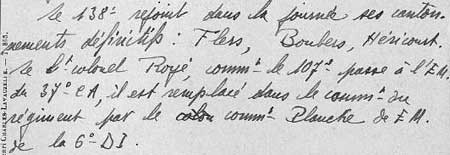 Le 138e rejoint dans la journée ses canton-
nements définitifs : Flers, Boubers, Héricourt.
Le Lt colonel Royé, commt le 107e passe à l'E.M.
du 37e CA, il est remplacé dans le commt du
régiment par le commt Blanche de E.M.
de la 6e DI.